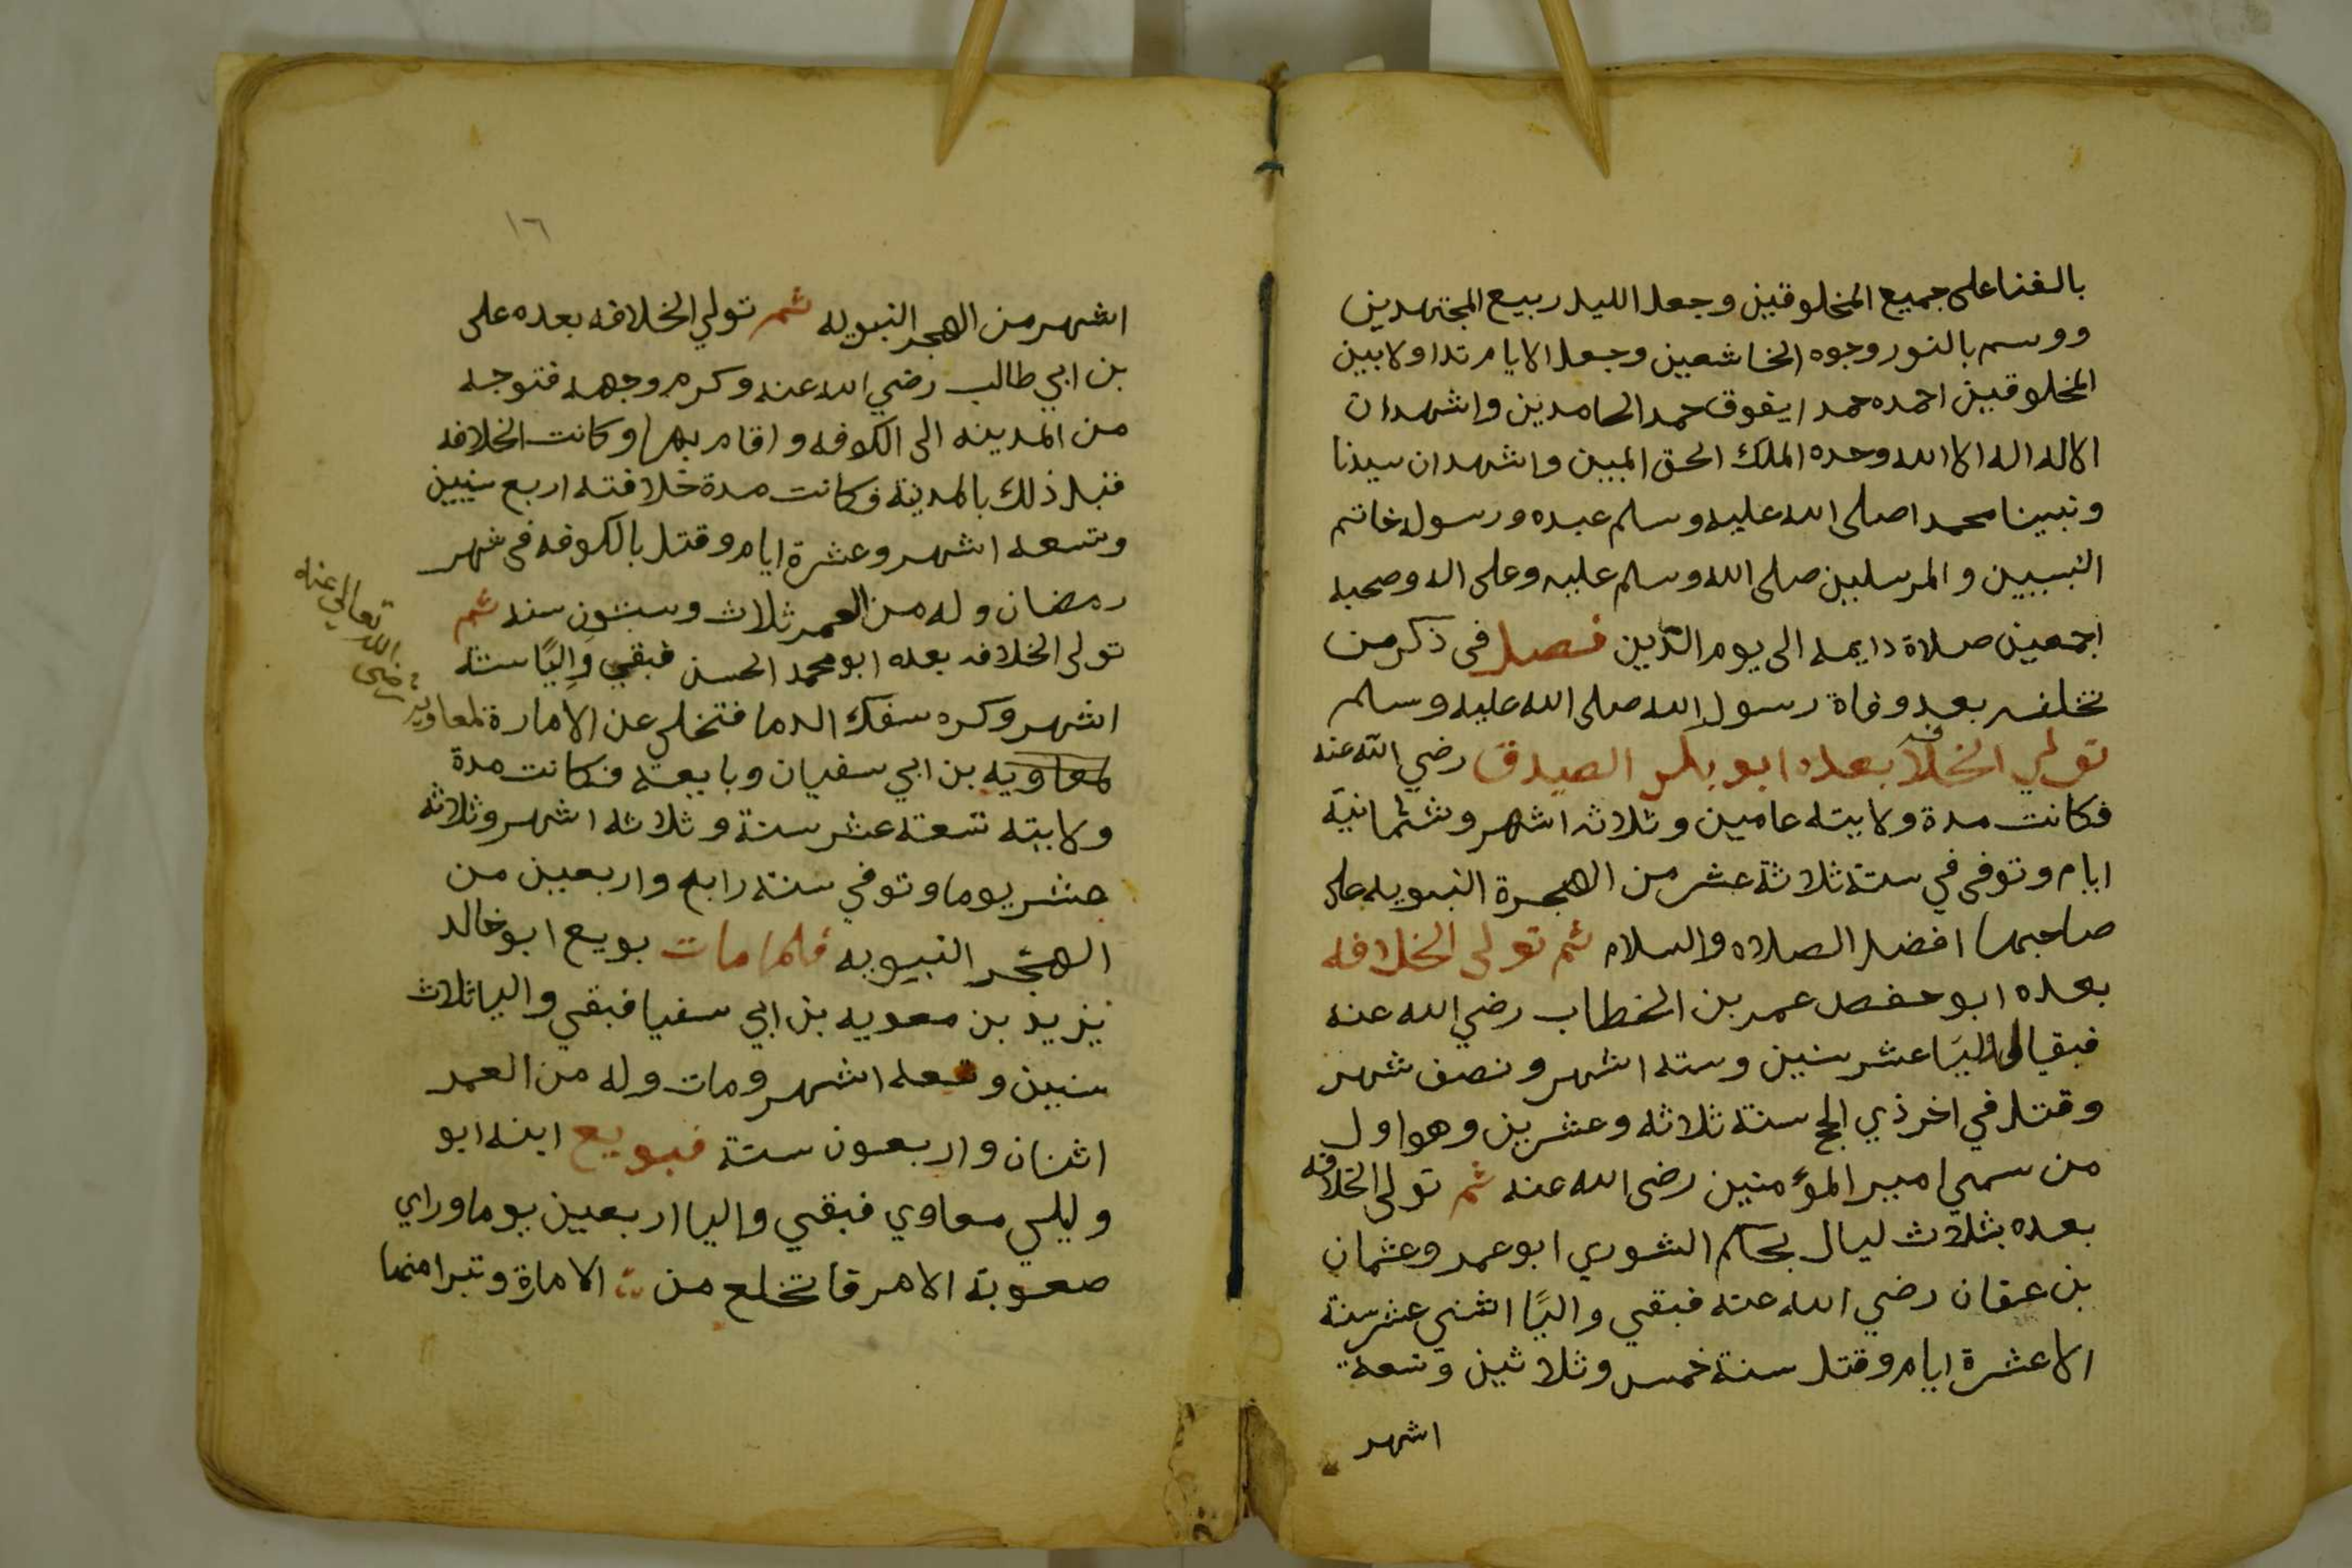 بالفنا على جميع المخلوقين وجعل الليل ربيع المجتهدين
ووسم بالنور وجوه الخاشعين وجعل الايام تداولا بين
المخلوقين احمده حمدا يفوق حمد الحامدين واشهد ان
الا اله اله الا الله وحده الملك الحق المبين واشهد ان سيدنا
ونبينا محمدا صلى الله عليه وسلم عبده ورسوله خاتم
النبيين والمرسلين صلى الله وسلم عليه وعلى اله وصحبه
اجمعين صلاة دايمه الى يوم الدين فصل في ذكر من
تخلف بعد وفاة رسول الله صلى الله عليه وسلم
تولي الخلافه بعده ابو بكر الصديق رضي الله عنه
فكانت مدة ولايته عامين وثلاثه اشهر وثمانية
ايام وتوفى في سنة ثلاثة عشر من الهجرة النبويه على
صاحبها افضل الصلاه والسلام ثم تولى الخلافه
بعده ابو حفص عمر بن الخطاب رضي الله عنه
فبقي واليا عشر سنين وسته اشهر ونصف شهر
وقتل في اخر ذي الحج سنة ثلاثه وعشرين وهو اول
من سمي امير المؤمنين رضى الله عنه ثم تولى الخلافه
بعده بثلاث ليال بحكم الشوري ابو عمر وعثمان
بن عفان رضي الله عنه فبقي واليًا اثني عشر سنة
الا عشرة ايام وقتل سنة خمس وثلاثين وتسعة
اشهر
١٦
اشهر من الهجر النبويه ثم تولي الخلافه بعده على
بن ابي طالب رضي الله عنه وكرم وجهه فتوجه
من المدينه الى الكوفه واقام بها وكانت الخلافه
قبل ذلك بالمدينة فكانت مدة خلافته اربع سنيين
وتسعه اشهر وعشرة ايام وقتل بالكوفه في شهر
رمضان وله من العمر ثلاث وستون سنه ثم
تولى الخلافه بعده ابو محمد الحسن فبقي واليًا ستة
اشهر وكره سفك الدما فتخلي عن الامارة لمعاويه
رضى الله تعالى عنه
لمعاويه بن ابي سفيان وبايعه فكانت مدة
ولايته تسعة عشر سنة وثلاثه اشهر وثلاثه
عشر يوما وتوفي سنة رابع واربعين من
الهجر النبيويه فلما مات بويع ابو خالد
يزيد بن معويه بن ابي سفيا فبقي واليا ثلاث
سنين وتسعه اشهر ومات وله من العمر
اثنان واربعون سنة فبويع ابنه ابو
وليلي معاوي فبقي واليا اربعين يوما وراي
صعوبة الامر فاتخلع من الامارة وتبرا منها